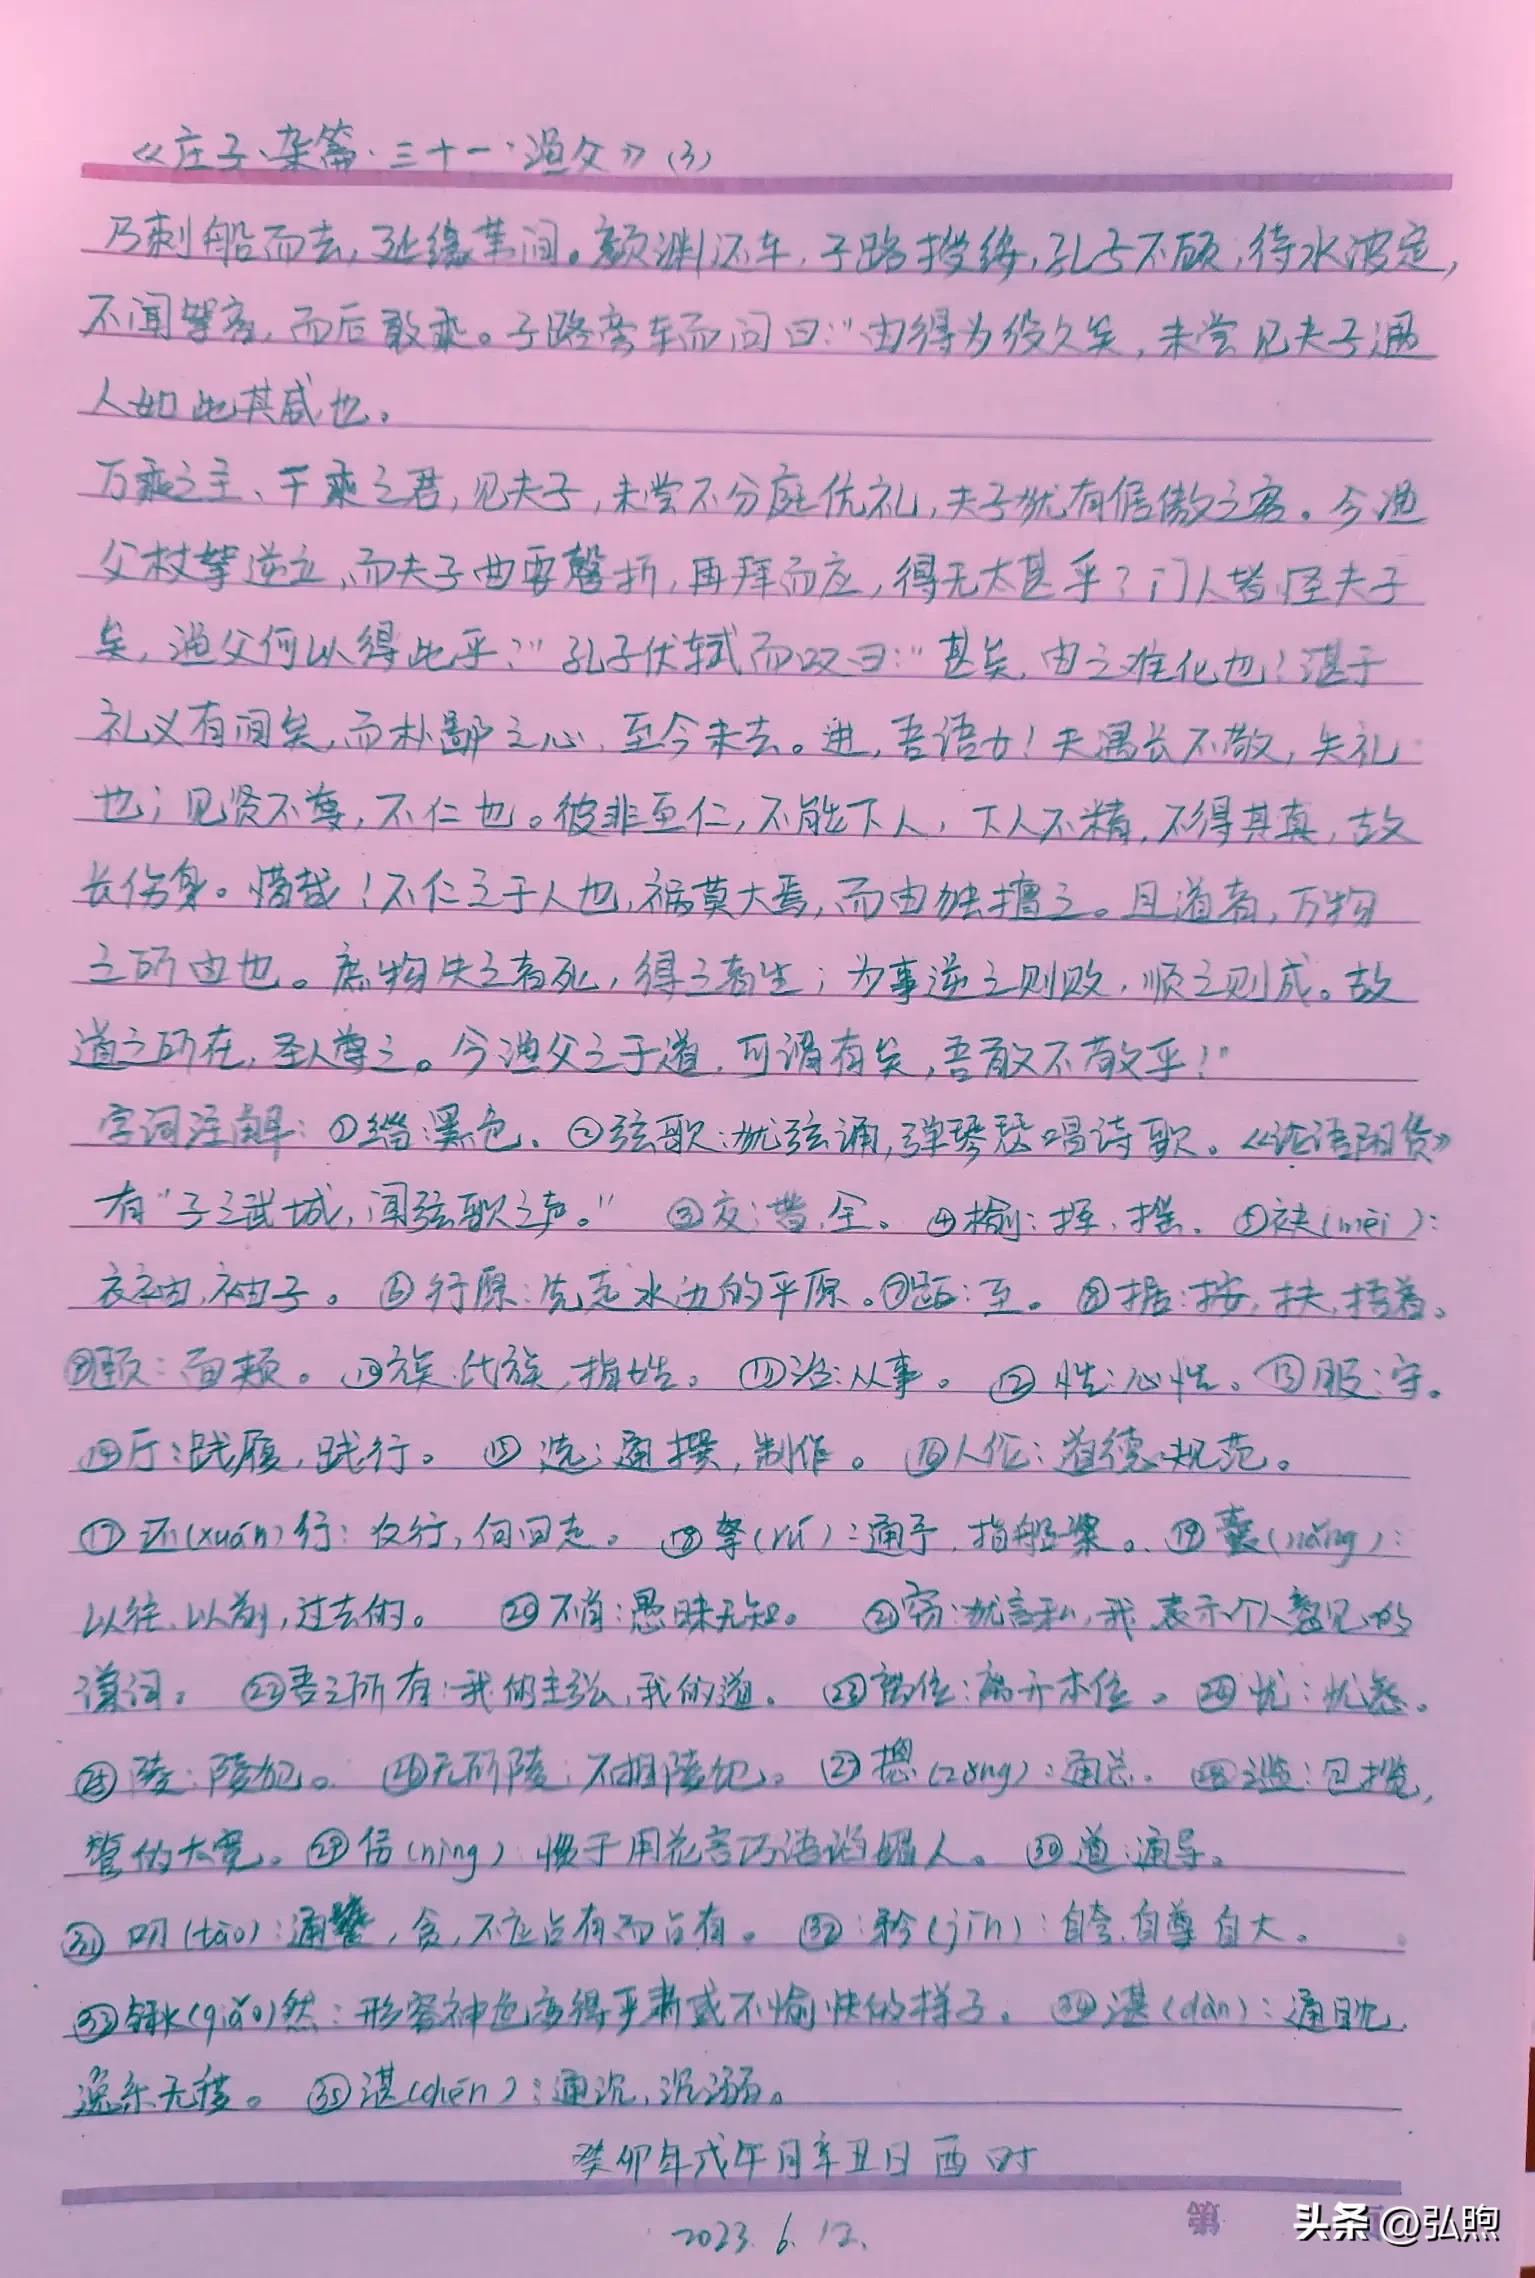 《庄子·杂篇·三十一·渔父》(3)
乃刺船而去,延缘苇间。颜渊还车,子路授绥,孔子不顾,待水波定,
不闻拏音,而后敢乘。子路旁车而问曰:“由得为役久矣,未尝见夫子遇
人如此其威也。
万乘之主、千乘之君,见夫子,未尝不分庭伉礼,夫子犹有倨傲之容。今渔
父杖拏逆立,而夫子曲要磬折,再拜而应,得无太甚乎?门人皆怪夫子
矣,渔父何以得此乎?”孔子伏轼而叹曰:“甚矣,由之难化也!湛于
礼义有间矣,而朴鄙之心,至今未去。进,吾语女!夫遇长不敬,失礼
也;见贤不尊,不仁也。彼非至仁,不能下人,下人不精,不得其真,故
长伤身。惜哉!不仁之于人也,祸莫大焉,而由独擅之。且道者,万物
之所由也。庶物失之者死,得之者生;为事逆之则败,顺之则成。故
道之所在,圣人尊之。今渔父之于道,可谓有矣,吾敢不敬乎!”
字词注解:①缁:黑色。②弦歌:犹弦诵,弹琴瑟唱诗歌。《论语阳货》
有“子之武城,闻弦歌之声。” ③交:皆,全。④揄:挥,摇。⑤袂(mèi):
衣袖,袖子。⑥行原:先走水边的平原。⑦距:至。⑧据:按,扶,捂着。
⑨颐:面颊。⑩族:氏族,指姓。⑪治:从事。⑫性:心性。⑬服:守。
⑭行:践履,践行。⑮选:通撰,制作。⑯人伦:道德规范。
⑰还(xuán)行:仅行,向回走。⑱拏(rú):通予,指船桨。⑲曩(nǎng):
以往、以前,过去的。⑳不肖:愚昧无知。㉑窃:犹言私,我,表示个人意见的
谦词。㉒吾之所有:我的主张,我的道。㉓离位:离开本位。㉔忧:忧愁。
㉕陵:陵犯。㉖无所陵:不相陵犯。㉗摠(zǒng):通总。㉘滥:包揽,
管的太宽。㉙佞(nìng):惯于用花言巧语谄媚人。㉚道:通导。
㉛叨(tāo):通饕,贪,不应占有而占有。㉜:矜(jīn):自夸,自尊自大。
㉝愀(qiǎo)然:形容神色变得严肃或不愉快的样子。㉞湛(dān):通耽,
逸乐无穷。㉟湛(chén):通沉,沉溺。
癸卯年戊午月辛丑日酉时
2023.6.12.
第 页
头条@弘煦